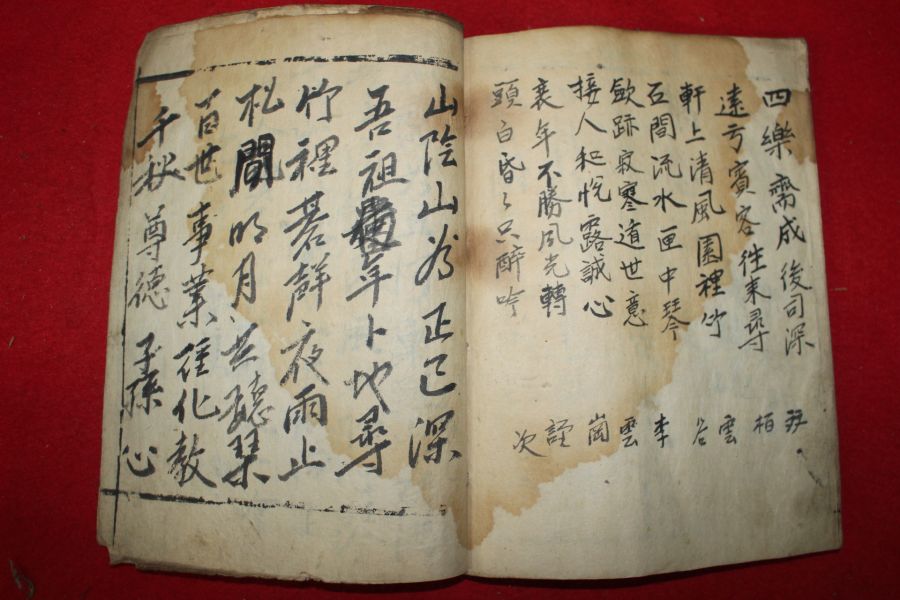 四樂齋成後司深
遠亏賓客往來尋
軒上清風園裡竹
石間流水匣中琴
歛跡寂寒道世意
接人和悅露誠心
衰年不勝風光轉
頭白昏々只醉吟
栢
雲
谷
李
雲
崗
謹
次
山陰山為正已深
吾祖年卜地尋
竹裡苔鮮夜雨止
松間明月共聽琴
百世事業種化教
千秋尊德子孫心